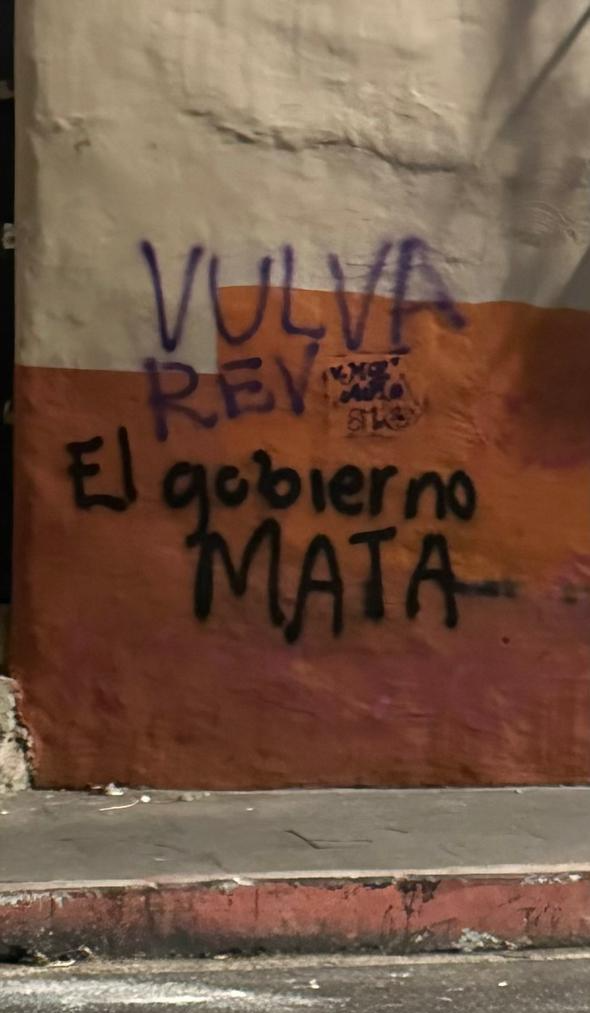 VULVA
REV
El gobierno
MATA